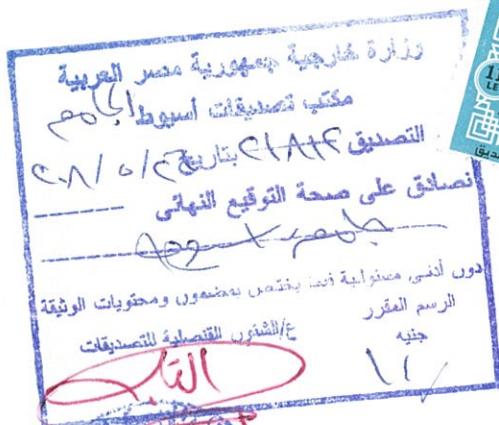 وزارة خارجية جمهورية مصر العربية
مكتب تصديقات أسيوط الجامعة
التصديق ٢١٨١٢ بتاريخ
نصادق على صحة التوقيع النهائى
جامعة اسيوط
دون أدنى مسئولية فيما يختص بمضمون ومحتويات الوثيقة
الرسم المقرر
جنيه
١١
ع/الشئون القنصلية للتصديقات
11
LE